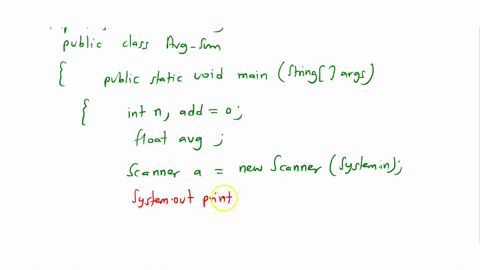 public class Avg-Sum
{ public static void main (String[] args)
{ int n, add = 0;
float avg ;
Scanner a = new Scanner (System.in);
System.out print